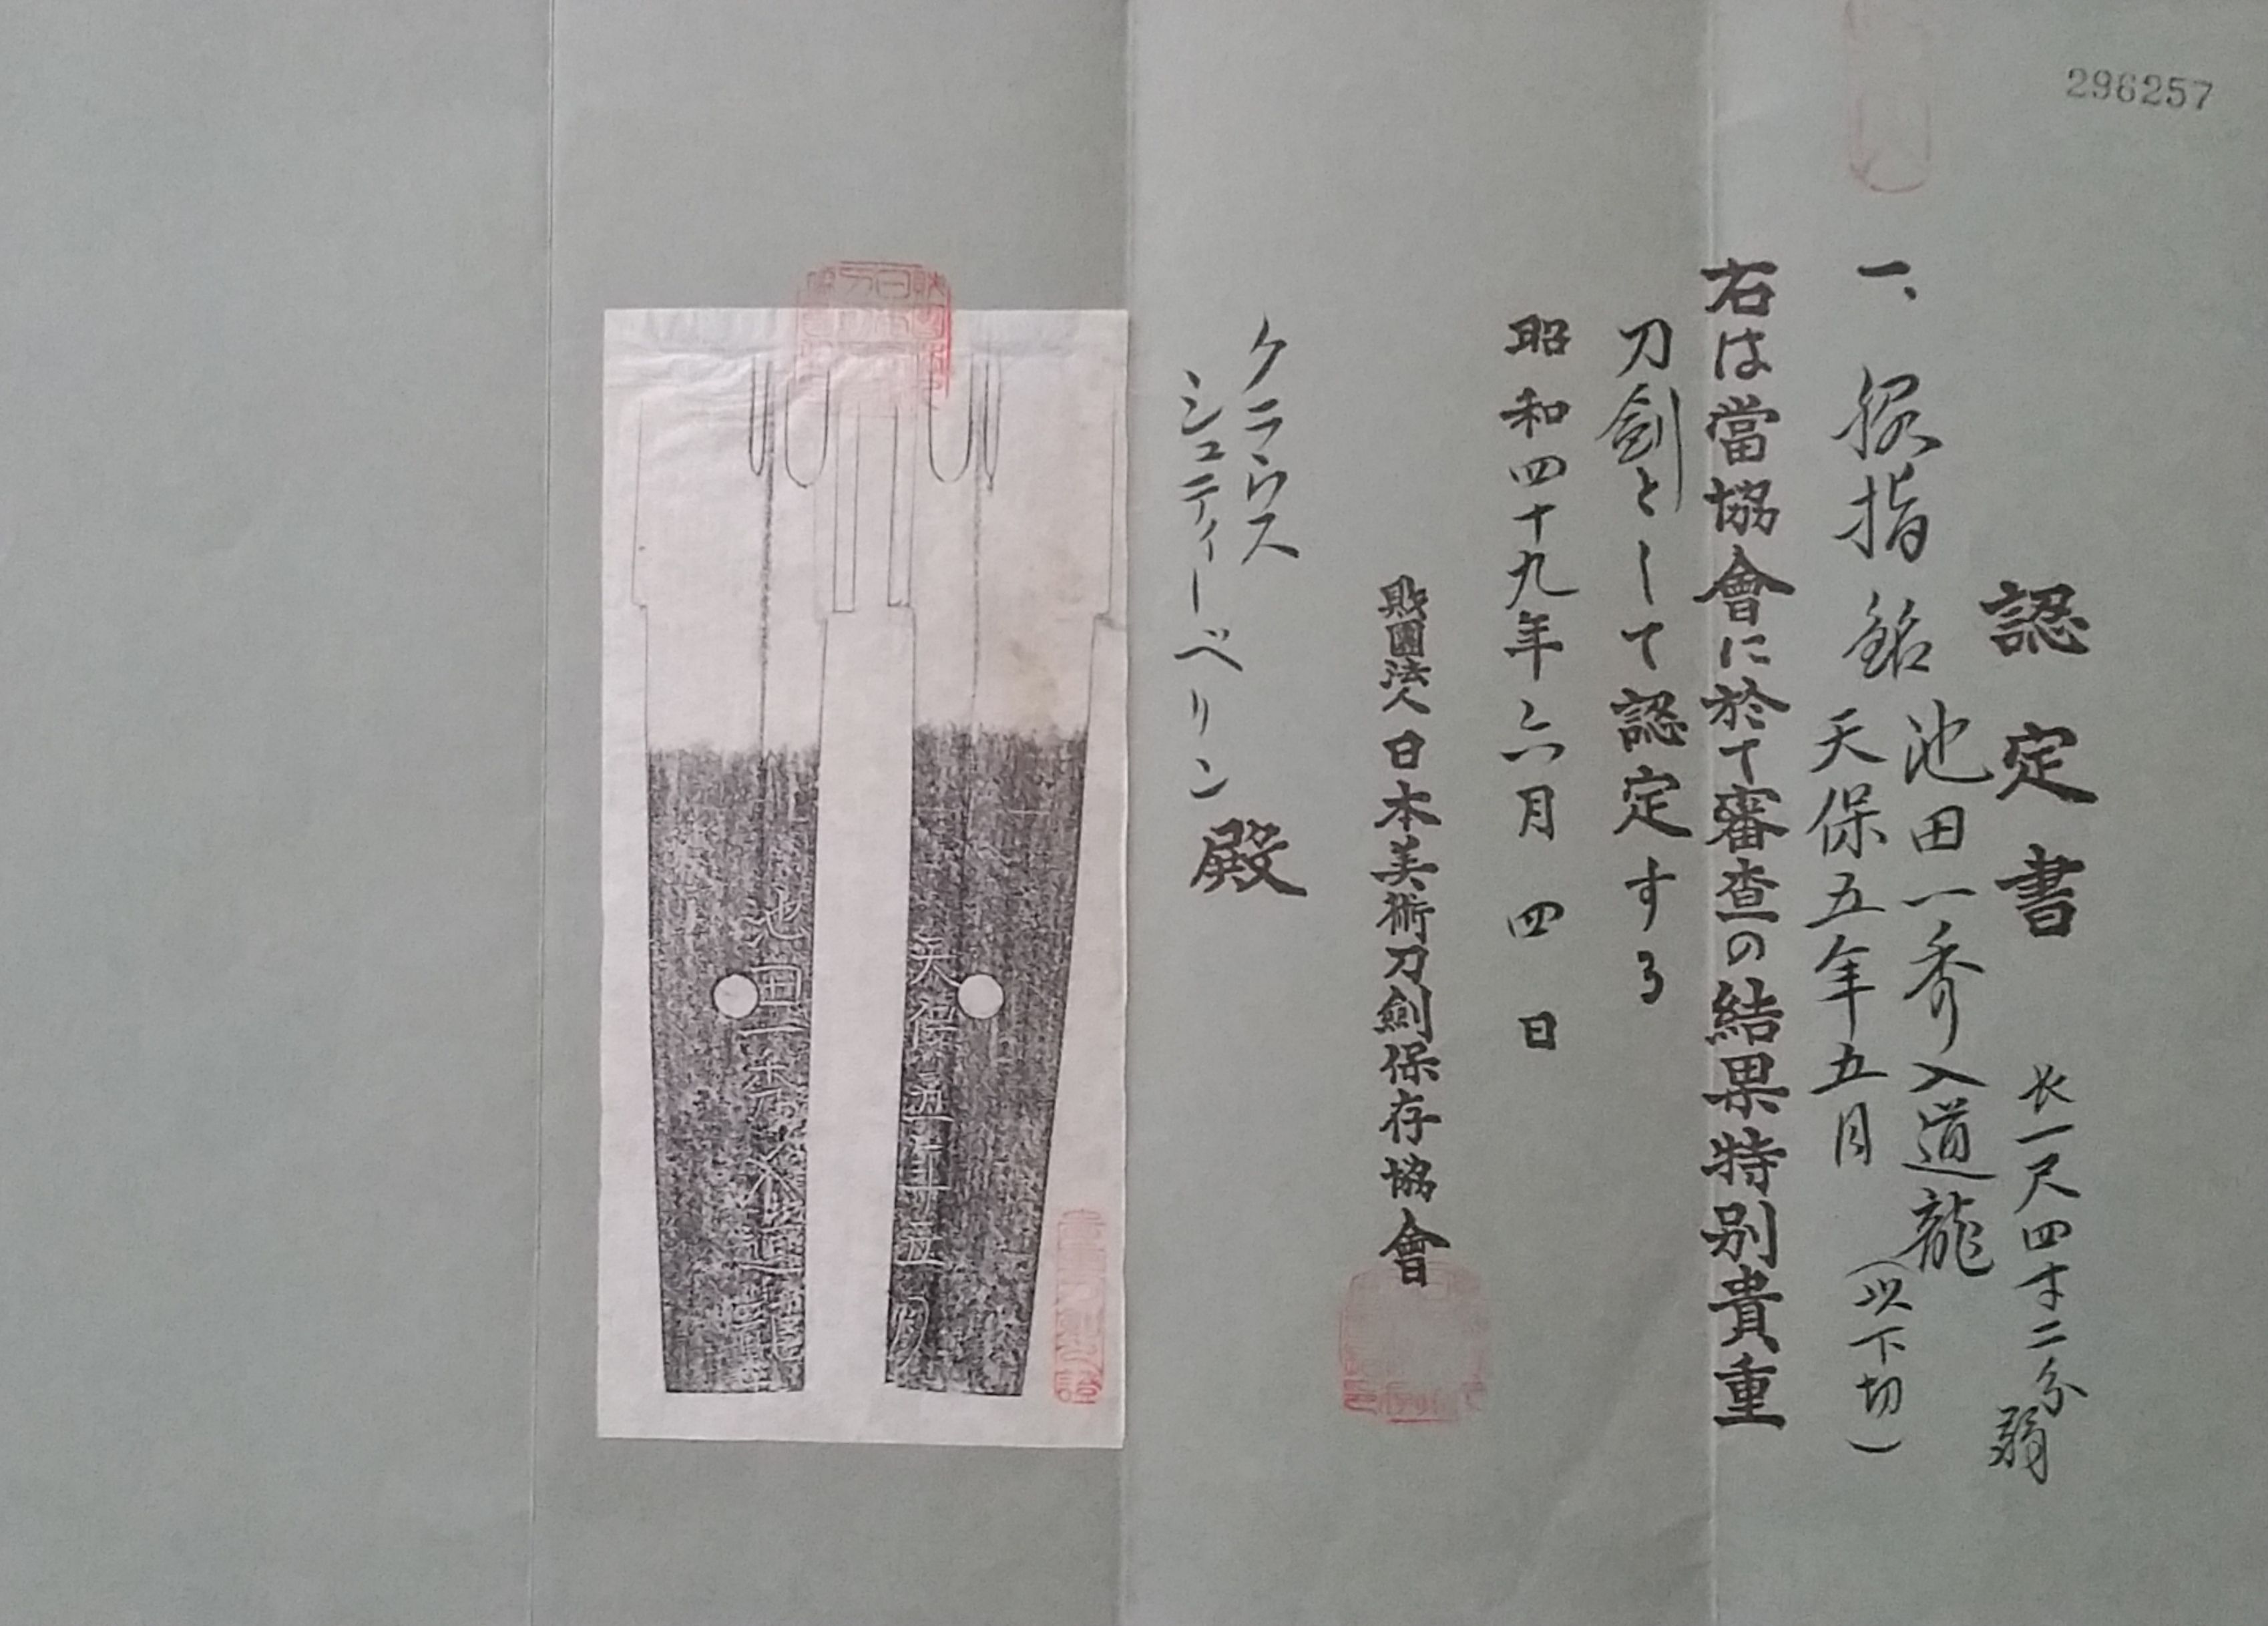 296257
認定書
長一尺四寸二分弱
一、脇指 銘 池田一秀入道龍
天保五年五月(以下切)
右は當協會に於て審査の結果特別貴重
刀劍として認定する
昭和四十九年六月四日
財團法人日本美術刀劍保存協會
クラウス
シュティーベリン殿
天保五年五月
池田一秀入道龍